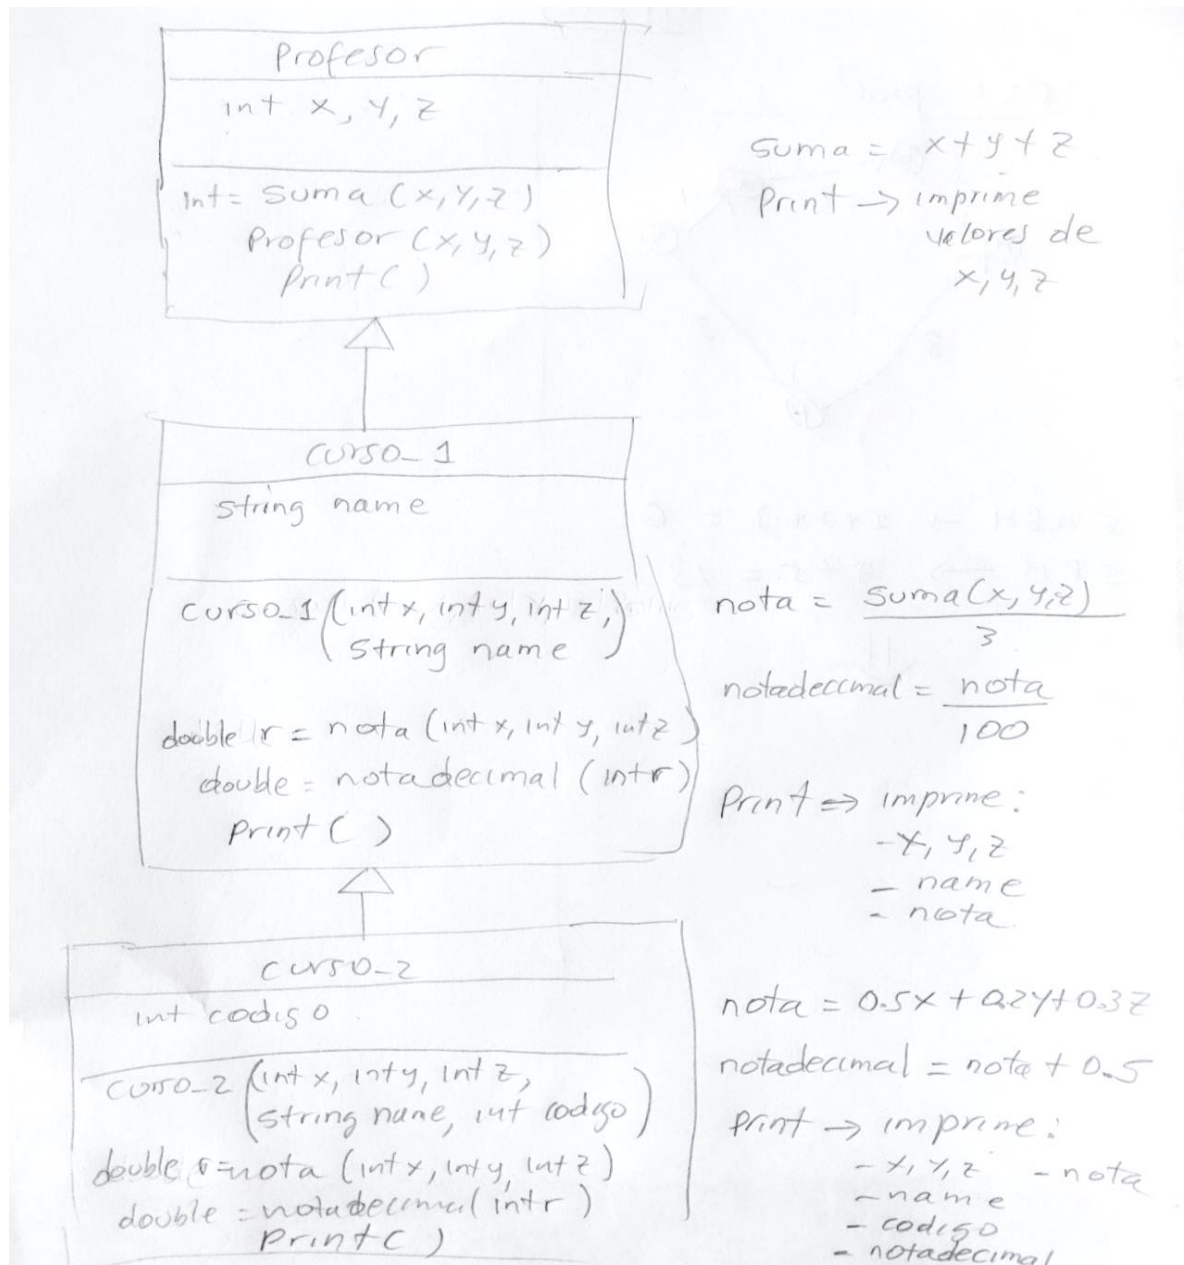 Profesor
int x, y, z
int = Suma (x, y, z)
Profesor (x, y, z)
Print ( )
Suma = x + y + z
Print → imprime
valores de
x, y, z
curso_1
string name
curso_1 (int x, int y, int z,
String name )
double r = nota (int x, int y, int z)
double = notadecimal (int r)
Print ( )
nota = Suma(x, y, z)
3
notadecimal = nota
100
Print ⇒ imprime:
- x, y, z
- name
- nota
curso_2
int codigo
curso_2 (int x, int y, int z,
string name, int codigo)
double r = nota (int x, int y, int z)
double = notadecimal (int r)
Print ( )
nota = 0.5x + 0.2y + 0.3z
notadecimal = nota + 0.5
Print → imprime:
- x, y, z - nota
- name
- codigo
- notadecimal